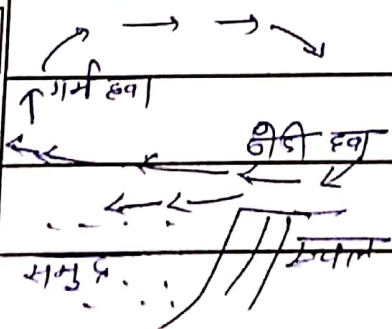 गर्म हवा
ठंडी हवा
समुद्र
स्थल